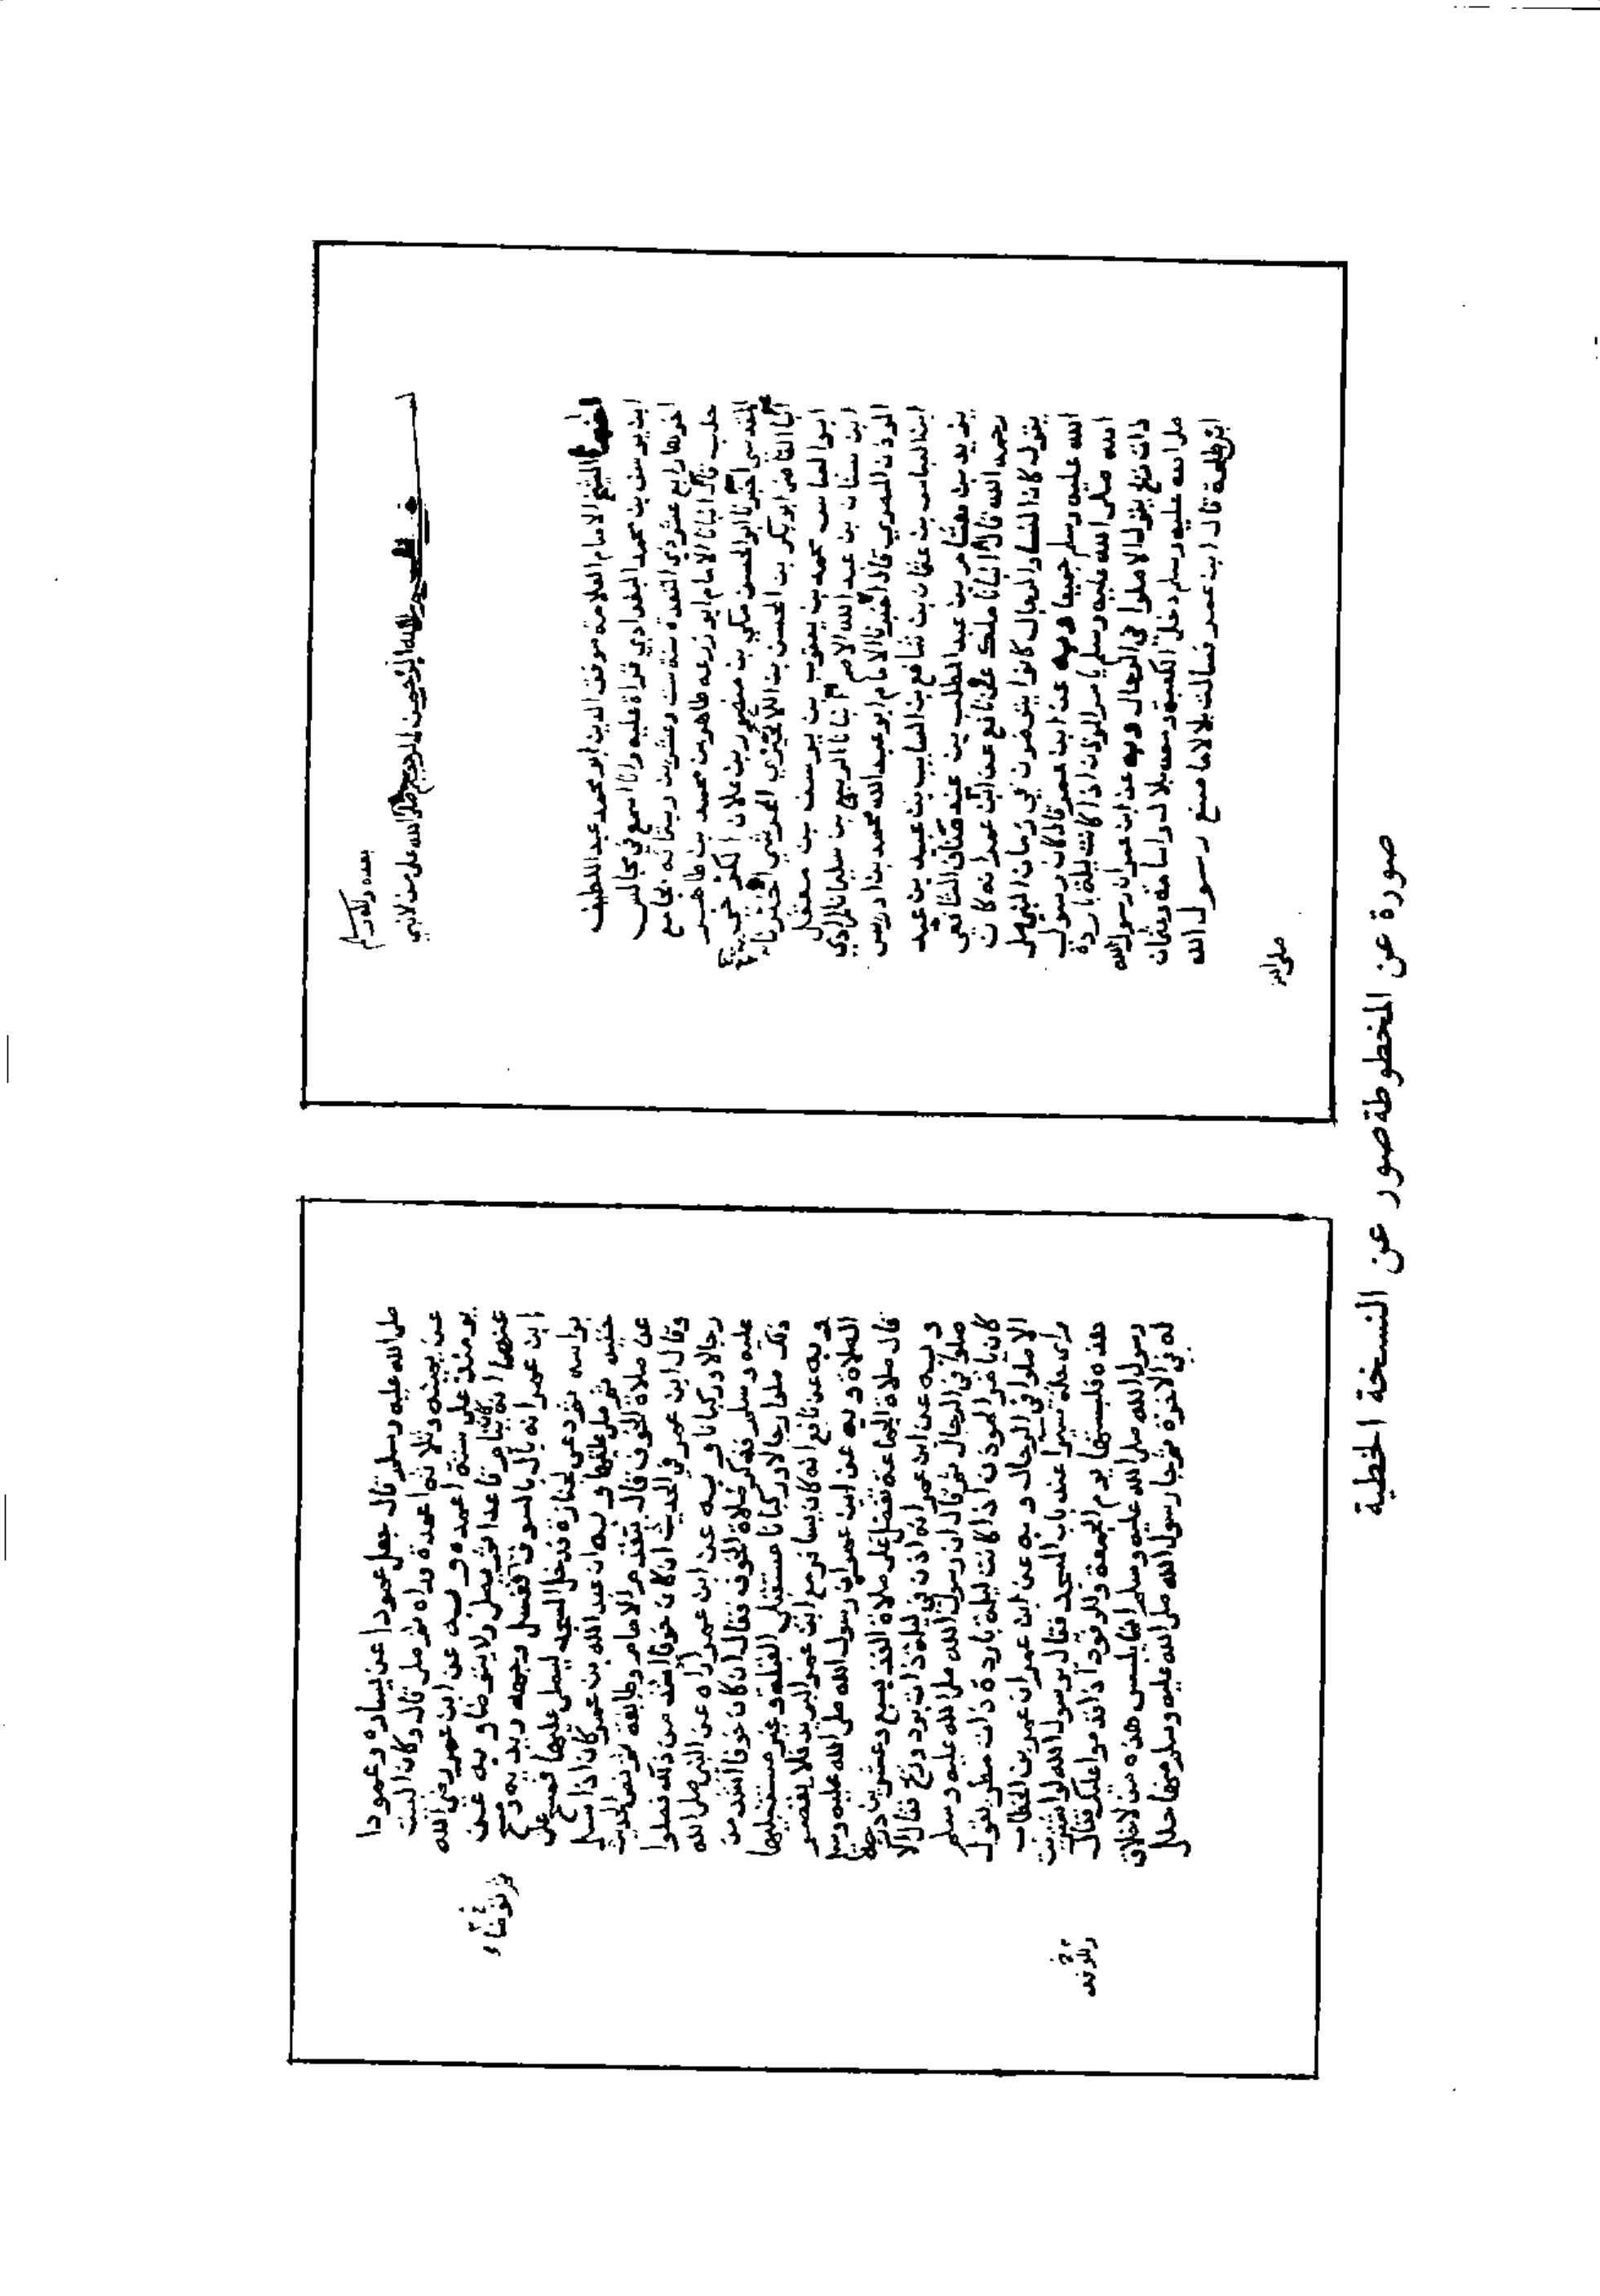 بعده وآله وسلم
بسم الله الرحمن الرحيم صلى الله على من لا نبي
اخبرنا الشيخ الامام العلامة موفق الدين ابو محمد عبد اللطيف
ابن يوسف بن محمد البغدادي قراة عليه وانا اسمع في مجالس
اخرها رابع عشر ذي القعدة سنة ست وعشرين وستمائة بجامع
حلب قال انبانا الامام ابو زرعة طاهر بن محمد بن طاهر
المقدسي اخبرنا ابو الحسن مكي بن منصور بن علان الكرجي
انبا القاضي ابو بكر بن الحسن الحرشي اخبرنا
ابو العباس محمد بن يعقوب بن يوسف بن معقل
ابن سنان بن عبد الله الاصم انبانا الربيع بن سليمان المرادي
الموذن المصري قال اخبرنا الامام ابو عبد الله محمد بن ادريس
ابن العباس بن عثمان بن شافع بن السايب بن عبيد بن عبد
يزيد بن هشام بن عبد المطلب بن عبد مناف الشافعي
رحمه الله قال انبانا ملك عن نافع عن ابن عمر انه كان
يقول كان النساء والرجال كانوا يتوضون في زمان النبي صلى
الله عليه وسلم جميعا وبه عن ابن عمر قال كان رسول
الله صلى الله عليه وسلم يامر الموذن اذا كانت ليلة باردة
ذات مطر يقول الا صلوا في الرحال وبه عن ابن عمر ان رسول الله
صلى الله عليه وسلم دخل الكعبة ومعه بلال واسامة وعثمان
ابن طلحة قال ابن عمر فسالت بلالا ما صنع رسول الله
صلى الله
صلى الله عليه وسلم قال جعل عمودا عن يساره وعمودا
عن يمينه وثلاثة اعمدة وراه ثم صلى قال وكان البيت
يومئذ على ستة اعمدة وبه عن ابن عمر رضي الله
عنهما انه كان ينام قاعدا ثم يصلي ولا يتوضا وبه عن
ابن عمر انه بال بالسوق فغسل وجهه ويديه ومسح
براسه ثم دعي لجنازة فدخل المسجد ليصلي عليها فمسح على
خفيه ثم صلى عليها وبه ان عبد الله بن عمر كان اذا سئل
عن صلاة الخوف قال يتقدم الامام وطايفة ثم نص الحديث
وقال ابن عمر في الحديث ان كان خوفا اشد من ذلك فصلوا
رجالا وركبانا وبه عن ابن عمر اراه عن النبي صلى الله
عليه وسلم فذكر صلاة الخوف فقال ان كان خوفا اشد من
ذلك صلوا رجالا وركبانا مستقبلي القبلة وغير مستقبليها
وبه عن نافع انه كان يسافر مع ابن عمر البريد فلا يقصر
الصلاة وبه عن ابن عمر ان رسول الله صلى الله عليه وسلم
قال صلاة الجماعة تفضل على صلاة الفذ بسبع وعشرين درجة
وبه عن ابن عمر انه اذن في ليلة ذات برد وريح فقال الا
صلوا في الرحال ثم قال ان رسول الله صلى الله عليه وسلم
كان يامر الموذن اذا كانت ليلة باردة ذات مطر يقول
الا صلوا في الرحال وبه عن ابن عمر ان عمر بن الخطاب
راى حلة سيرا عند باب المسجد فقال يرسول الله لو اشتريت
هذه فلبستها يوم الجمعة وللوفود اذا قدموا عليك فقال
رسول الله صلى الله عليه وسلم انما يلبس هذه من لا خلاق
له في الاخرة ثم جا رسول الله صلى الله عليه وسلم منها حلل
صورة عن المخطوطة صور عن النسخة الخطية